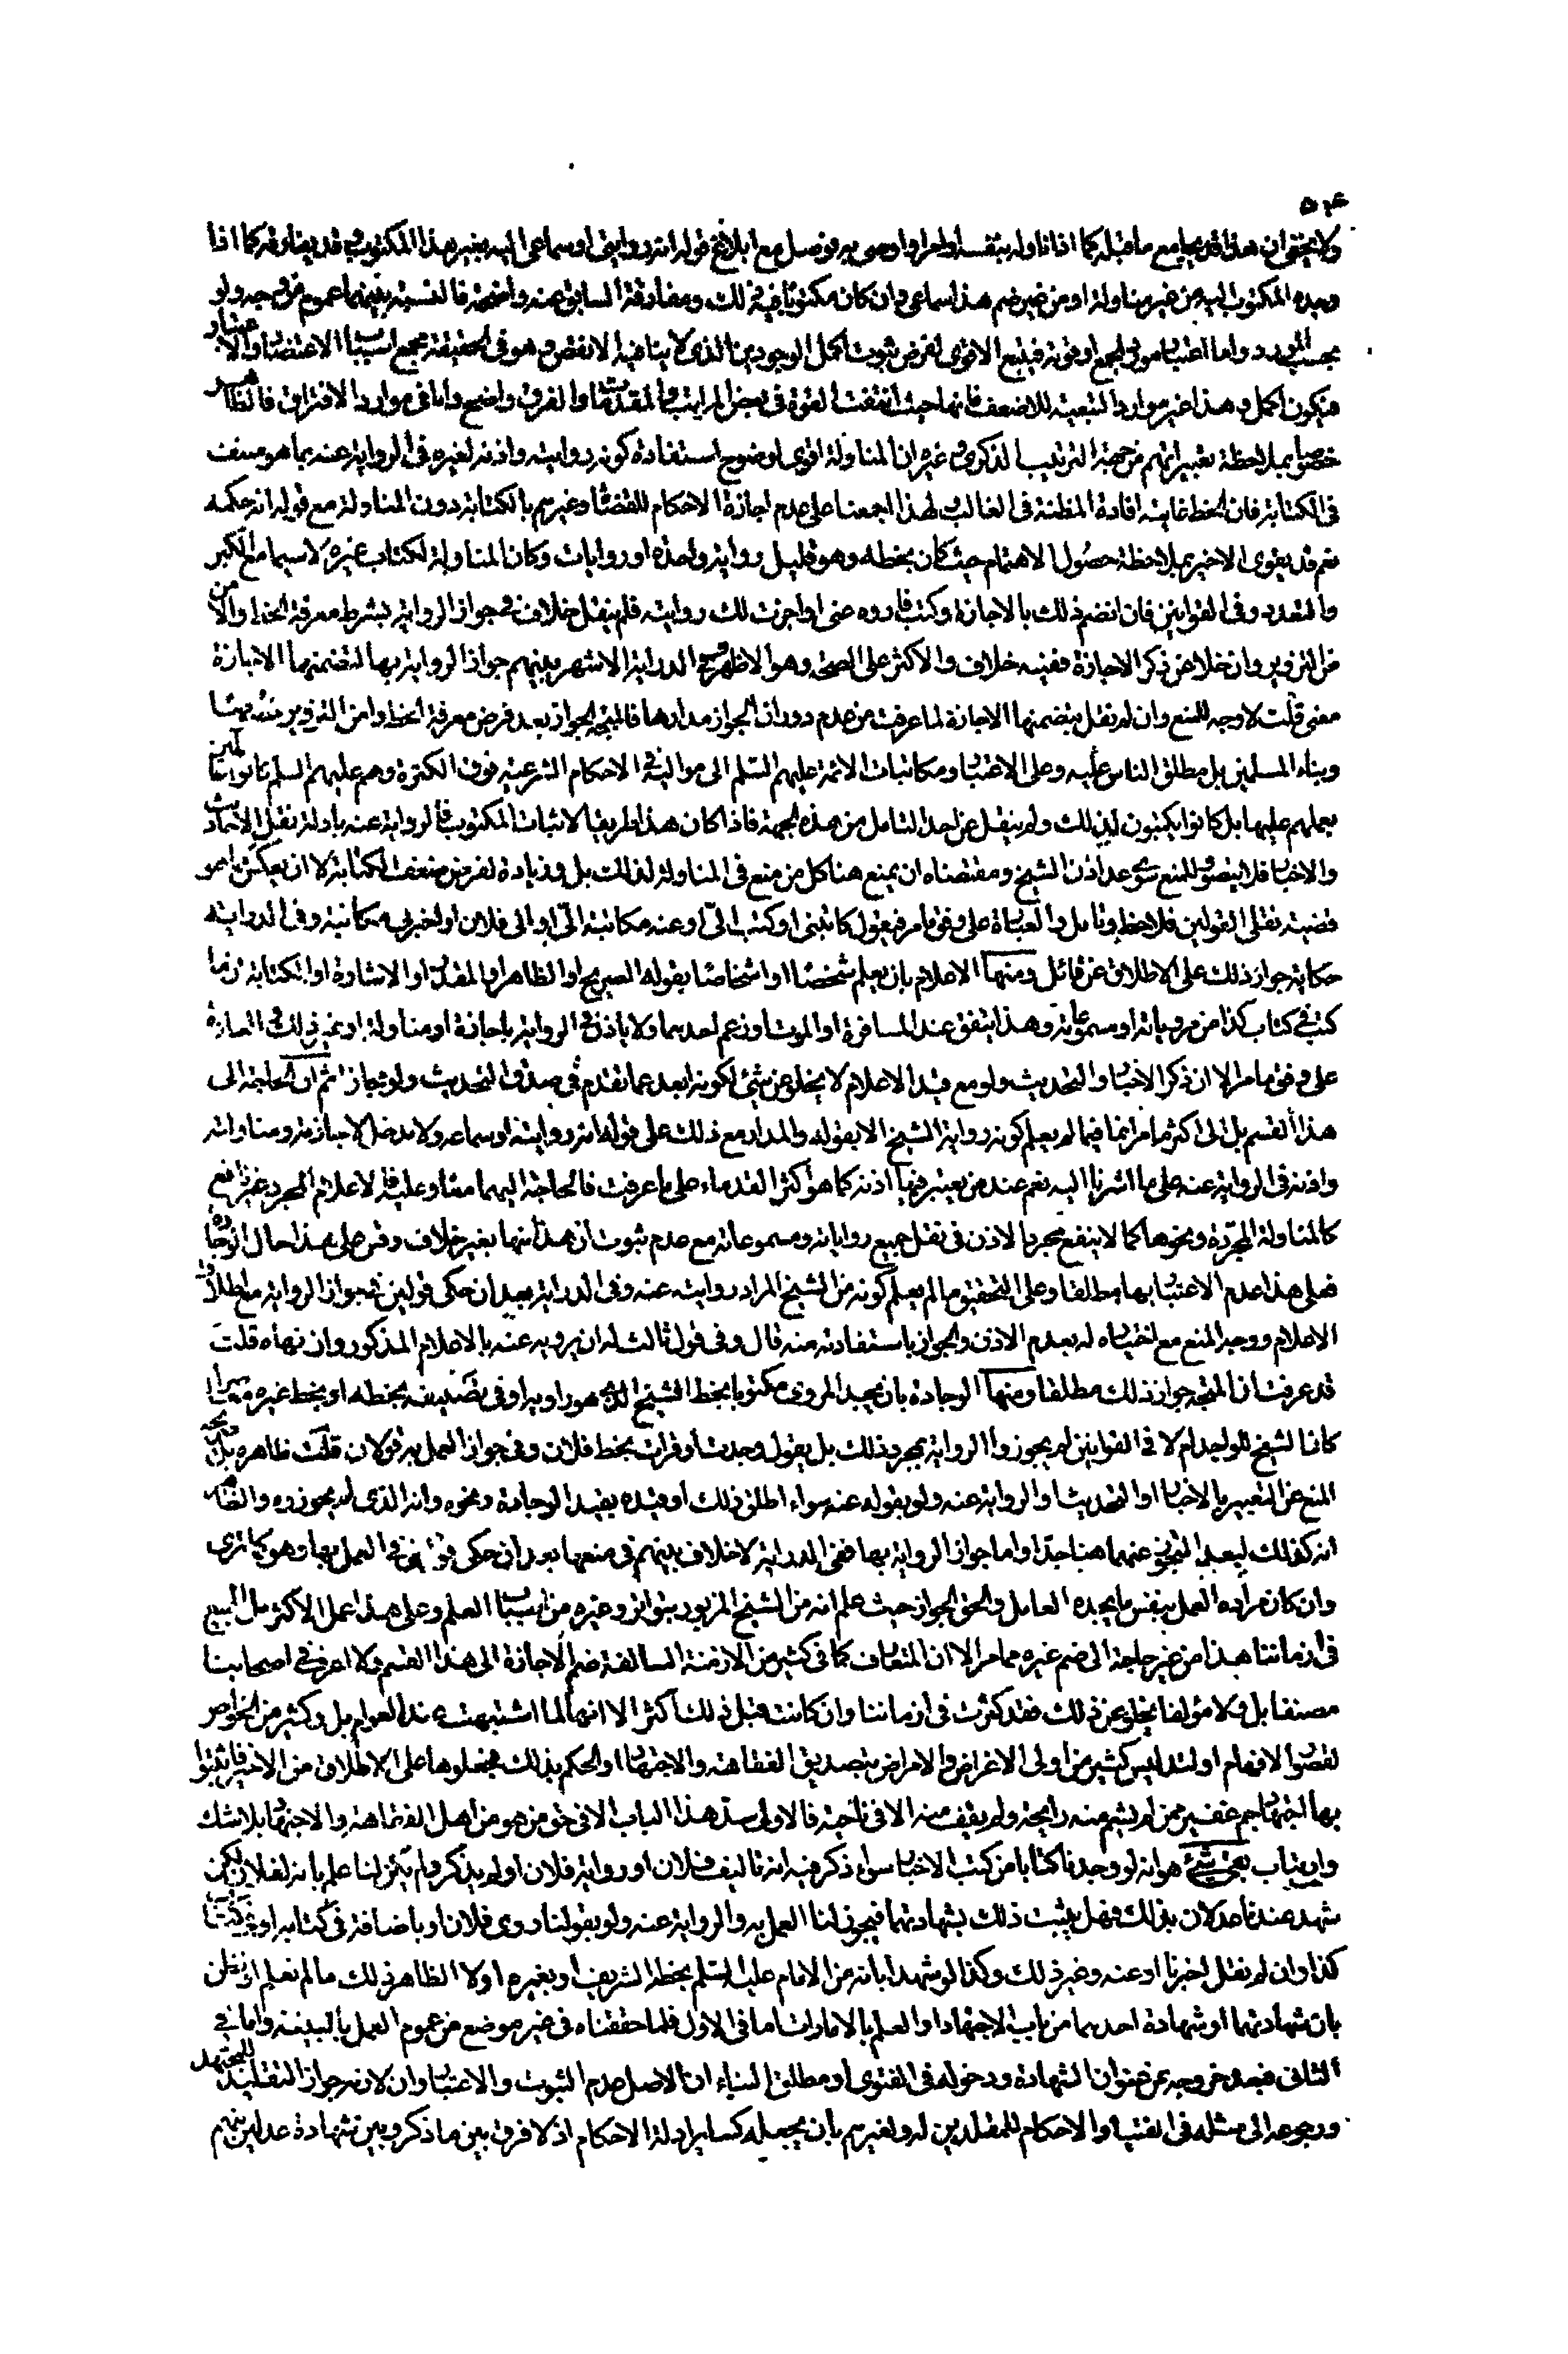 ولا يخفى ان هذا قد يجامع ما قبله كما اذا ناوله بنفسه او اوصى به فوصل مع ابلاغ قوله انه روايتى او سماعى اليه بغير هذا المكتوب وقد يفارقه كما اذا
وجده المكتوب اليه من غير مناولة او من غير ضم هذا سماعى وان كان مكتوبا فيه ذلك ومفارقة السابق عنه واضحة فالنسبة بينهما عموم من وجه ولو
بحسب المورد واما اعتبار مورد الجمع او قوته فيتبع الاقوى لفرض ثبوت اكمل الوجودين الذى لا ينافيه الانقص وهو فى الحقيقة مجمع اسباب الاعتضاد والاعتبار
فيكون اكمل وهذا غير موارد التبعية للاضعف فانها حيث انتفت القوة فى بعض المراتب والمقدمات والفرق واضح واما فى موارد الافتراق فالظاهر
خصوصا بملاحظة تعبيراتهم من جهة الترتيب الذكرى وغيره ان المناولة اقوى لوضوح استفادة كونه روايته واذنه لغيره فى الرواية عنه بما هو منتف
فى الكتابة فان الخط غايته افادة المظنة فى الغالب لهذا اجمعنا على عدم اجازة الاحكام للقضاة وغيرهم بالكتابة دون المناولة مع قوله انه حكمه
نعم قد يقوى الاخير بملاحظة حصول الاهتمام حيث كان بخطه وهو قليل رواية واحدة او روايات وكان المناولة لكتاب غيره لا سيما مع الكبر
والتعدد وفى القوانين فان انضم ذلك بالاجازة وكتب فاروه عنى او اجزت لك روايته فلم ينقل خلاف فى جواز الرواية بشرط معرفة الخط والامن
من التزوير وان خلا عن ذكر الاجازة ففيه خلاف والاكثر على الصحة وهو الاظهر وفى الدراية الاشهر بينهم جواز الرواية بها لتضمنها الاجازة
معنى قلت لا وجه للمنع وان لم نقل بتضمنها الاجازة لما عرفت من عدم دوران الجواز مدارها فالمتجه الجواز بعد فرض معرفة الخط وامن التزوير
وبناء المسلمين بل مطلق الناس عليه وعلى الاعتبار ومكاتبات الائمة عليهم السلم الى مواليه فى الاحكام الشرعية فوق الكثرة وهم عليهم السلم كانوا عالمين
بعملهم عليها بل كانوا يكتبون لذلك ولم ينقل عن احد التامل من هذه الجهة فاذا كان هذا طريقا لاثبات المكتوب فالرواية عنه بادلة نقل الاحاديث
والاخبار فلا يتصور للمنع سوى عدم اذن الشيخ ومقتضاه ان يمنع هنا كل من منع فى المناولة لذلك بل وزيادة لفرض ضعف الكتابة لا ان يعكس كما هو
قضية نقل القولين فلاحظ وتامل والعبارة على وفق ما مر فيقول كاتبنى او كتب الىّ او عنه مكاتبة الىّ او الى فلان او اخبرنى مكاتبة وفى الدراية
حكاية جواز ذلك على الاطلاق عن قائل ومنها الاعلام بان يعلم شخصا او اشخاصا بقوله الصريح او الظاهر او المقدر او الاشارة او الكتابة ان ما
كتب فى كتاب كذا من مروياته او مسموعاته وهذا يتفق عند المسافرة او الموت او زعم احدهما ولا ياذن فى الرواية باجازة او مناولة او غير ذلك والعبارة
على وفق ما مر الا ان ذكر الاخبار والتحديث ولو مع قيد الاعلام لا يخلو عن شئ لكونه ابعد عما تقدم فى صدق التحديث ولو تجازا ثم ان الحاجة الى
هذا القسم بل الى اكثر ما مر انما فيما لم يعلم كونه رواية الشيخ الا بقوله والمدار مع ذلك على قوله انه روايته او سماعه ولا مدخل لاجازته ومناولته
واذنه فى الرواية عنه على ما اشرنا اليه نعم عند من يعتبر فيها اذنه كما هو اكثر القدماء على ما عرفت فالحاجة اليهما معا وعليه فالاعلام المجرد غير نافع
كالمناولة المجردة ونحوها كما لا ينفع مجرد الاذن فى نقل جميع رواياته ومسموعاته مع عدم ثبوت ان هذا منها بغير خلاف وقس على هذا حال الوجادة
فعلى هذا عدم الاعتبار بها مطلقا وعلى التحقيق ما لم يعلم كونه من الشيخ المراد روايته عنه وفى الدراية بعد ان حكى قولين فى جواز الرواية مع اطلاق
الاعلام ووجه المنع مع اختياره له بعدم الاذن والجواز باستفادته منه قال وفى قول ثالث له ان يرويه عنه بالاعلام المذكور وان نهاه قلت
قد عرفت ان المتجه جواز ذلك مطلقا ومنها الوجادة بان يجد المروى مكتوبا بخط الشيخ الذى هو راويه او فى تصنيفه بخطه او بخط غيره معاصرا
كان الشيخ للواجد ام لا فى القوانين لم يجوزوا الرواية بمجرد ذلك بل يقول وجدت او قرات بخط فلان وفى جواز العمل به قولان قلت ظاهره بل صريحه
المنع عن التعبير بالاخبار او التحديث او الرواية عنه ولو بقوله عنه سواء اطلق ذلك او قيده بقيد الوجادة ونحوه وانه الذى لم يجوزوه والظاهر
انه كذلك لبعد التجوز عنهما هنا جدا واما جواز الرواية بها ففى الدراية لا خلاف بينهم فى منعها بعد ان حكى قولين فى العمل بها وهو كما ترى
وان كان مراده العمل بنفس ما يجده العامل والحق الجواز حيث علم انه من الشيخ المزبور بتواتر وغيره من اسباب العلم وعلى هذا عمل الاكثر بل الجميع
فى ازماننا هذا من غير حاجة الى ضم غيره مما مر الا ان المتعارف كما فى كثير من الازمنة السالفة ضم الاجازة الى هذا القسم ولا اعرف فى اصحابنا
مصنفا بل ولا مؤلفا يخلو عن ذلك فقد كثرت فى ازماننا وان كانت قبل ذلك اكثر الا انها لما اشتبهت عند العوام بل وكثير من الخواص
لقصور الافهام او لتدليس كثير من اولى الاغراض والامراض بتصديق الفقاهة والاجتهاد او الحكم بذلك فجعلوها على الاطلاق من الاخير فاثبتوا
بها اجتهاد جم غفير ممن لم يشم منه رايحة ولم يقف منه الا فى ناحية فالاولى سد هذا الباب الا فى حق من هو من اهل الفقاهة والاجتهاد بلا شك
وارتياب بقى شئ هو انه لو وجدنا كتابا من كتب الاخبار سواء ذكر فيه انه تاليف فلان او رواية فلان او لم يذكر ولم يكن لنا علم بانه لفلان لكن
شهد عندنا عدلان بذلك فهل يثبت ذلك بشهادتهما فيجوز لنا العمل به والرواية عنه ولو بقولنا روى فلان او باضافة فى كتابه او فى كتاب
كذا وان لم نقل اخبرنا او عنه وغير ذلك وكذا لو شهدا بانه من الامام عليه السلم بخطه الشريف او بغيره او لا الظاهر ذلك ما لم نعلم او نظن
بان شهادتهما او شهادة احدهما من باب الاجتهاد او العلم بالامارات اما فى الاول فلما حققناه فى غير موضع من عموم العمل بالبينة واما فى
الثانى فبعد خروجه عن عنوان الشهادة ودخوله فى الفتوى او مطلق البناء ان الاصل عدم الثبوت والاعتبار وان لازمه جواز التقليد للمجتهد
ورجوعه الى مثله فى الفتيا والاحكام للمقلدين له ولغيرهم بان يجعله كساير ادلة الاحكام اذ لا فرق بين ما ذكر وبين شهادة عدلين منهم